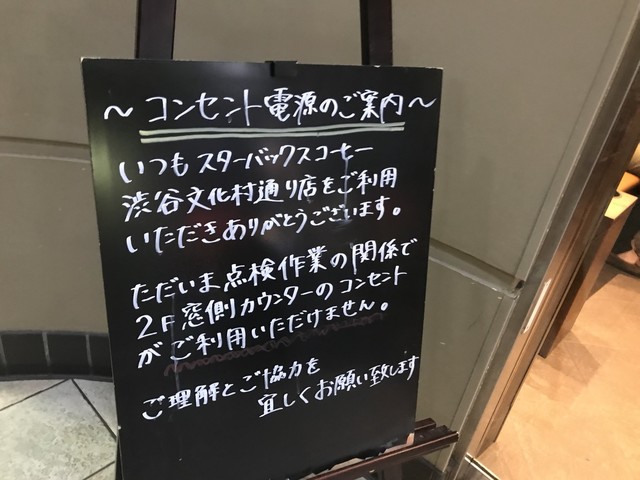 ～コンセント電源のご案内～
いつもスターバックスコーヒー
渋谷文化村通り店をご利用
いただきありがとうございます。
ただいま点検作業の関係で
2F窓側カウンターのコンセント
がご利用いただけません。
ご理解とご協力を
宜しくお願い致します